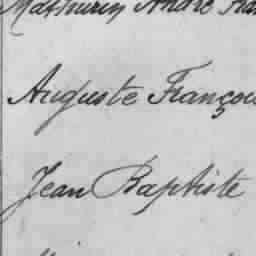 Mathurin André
Auguste François
Jean Baptiste